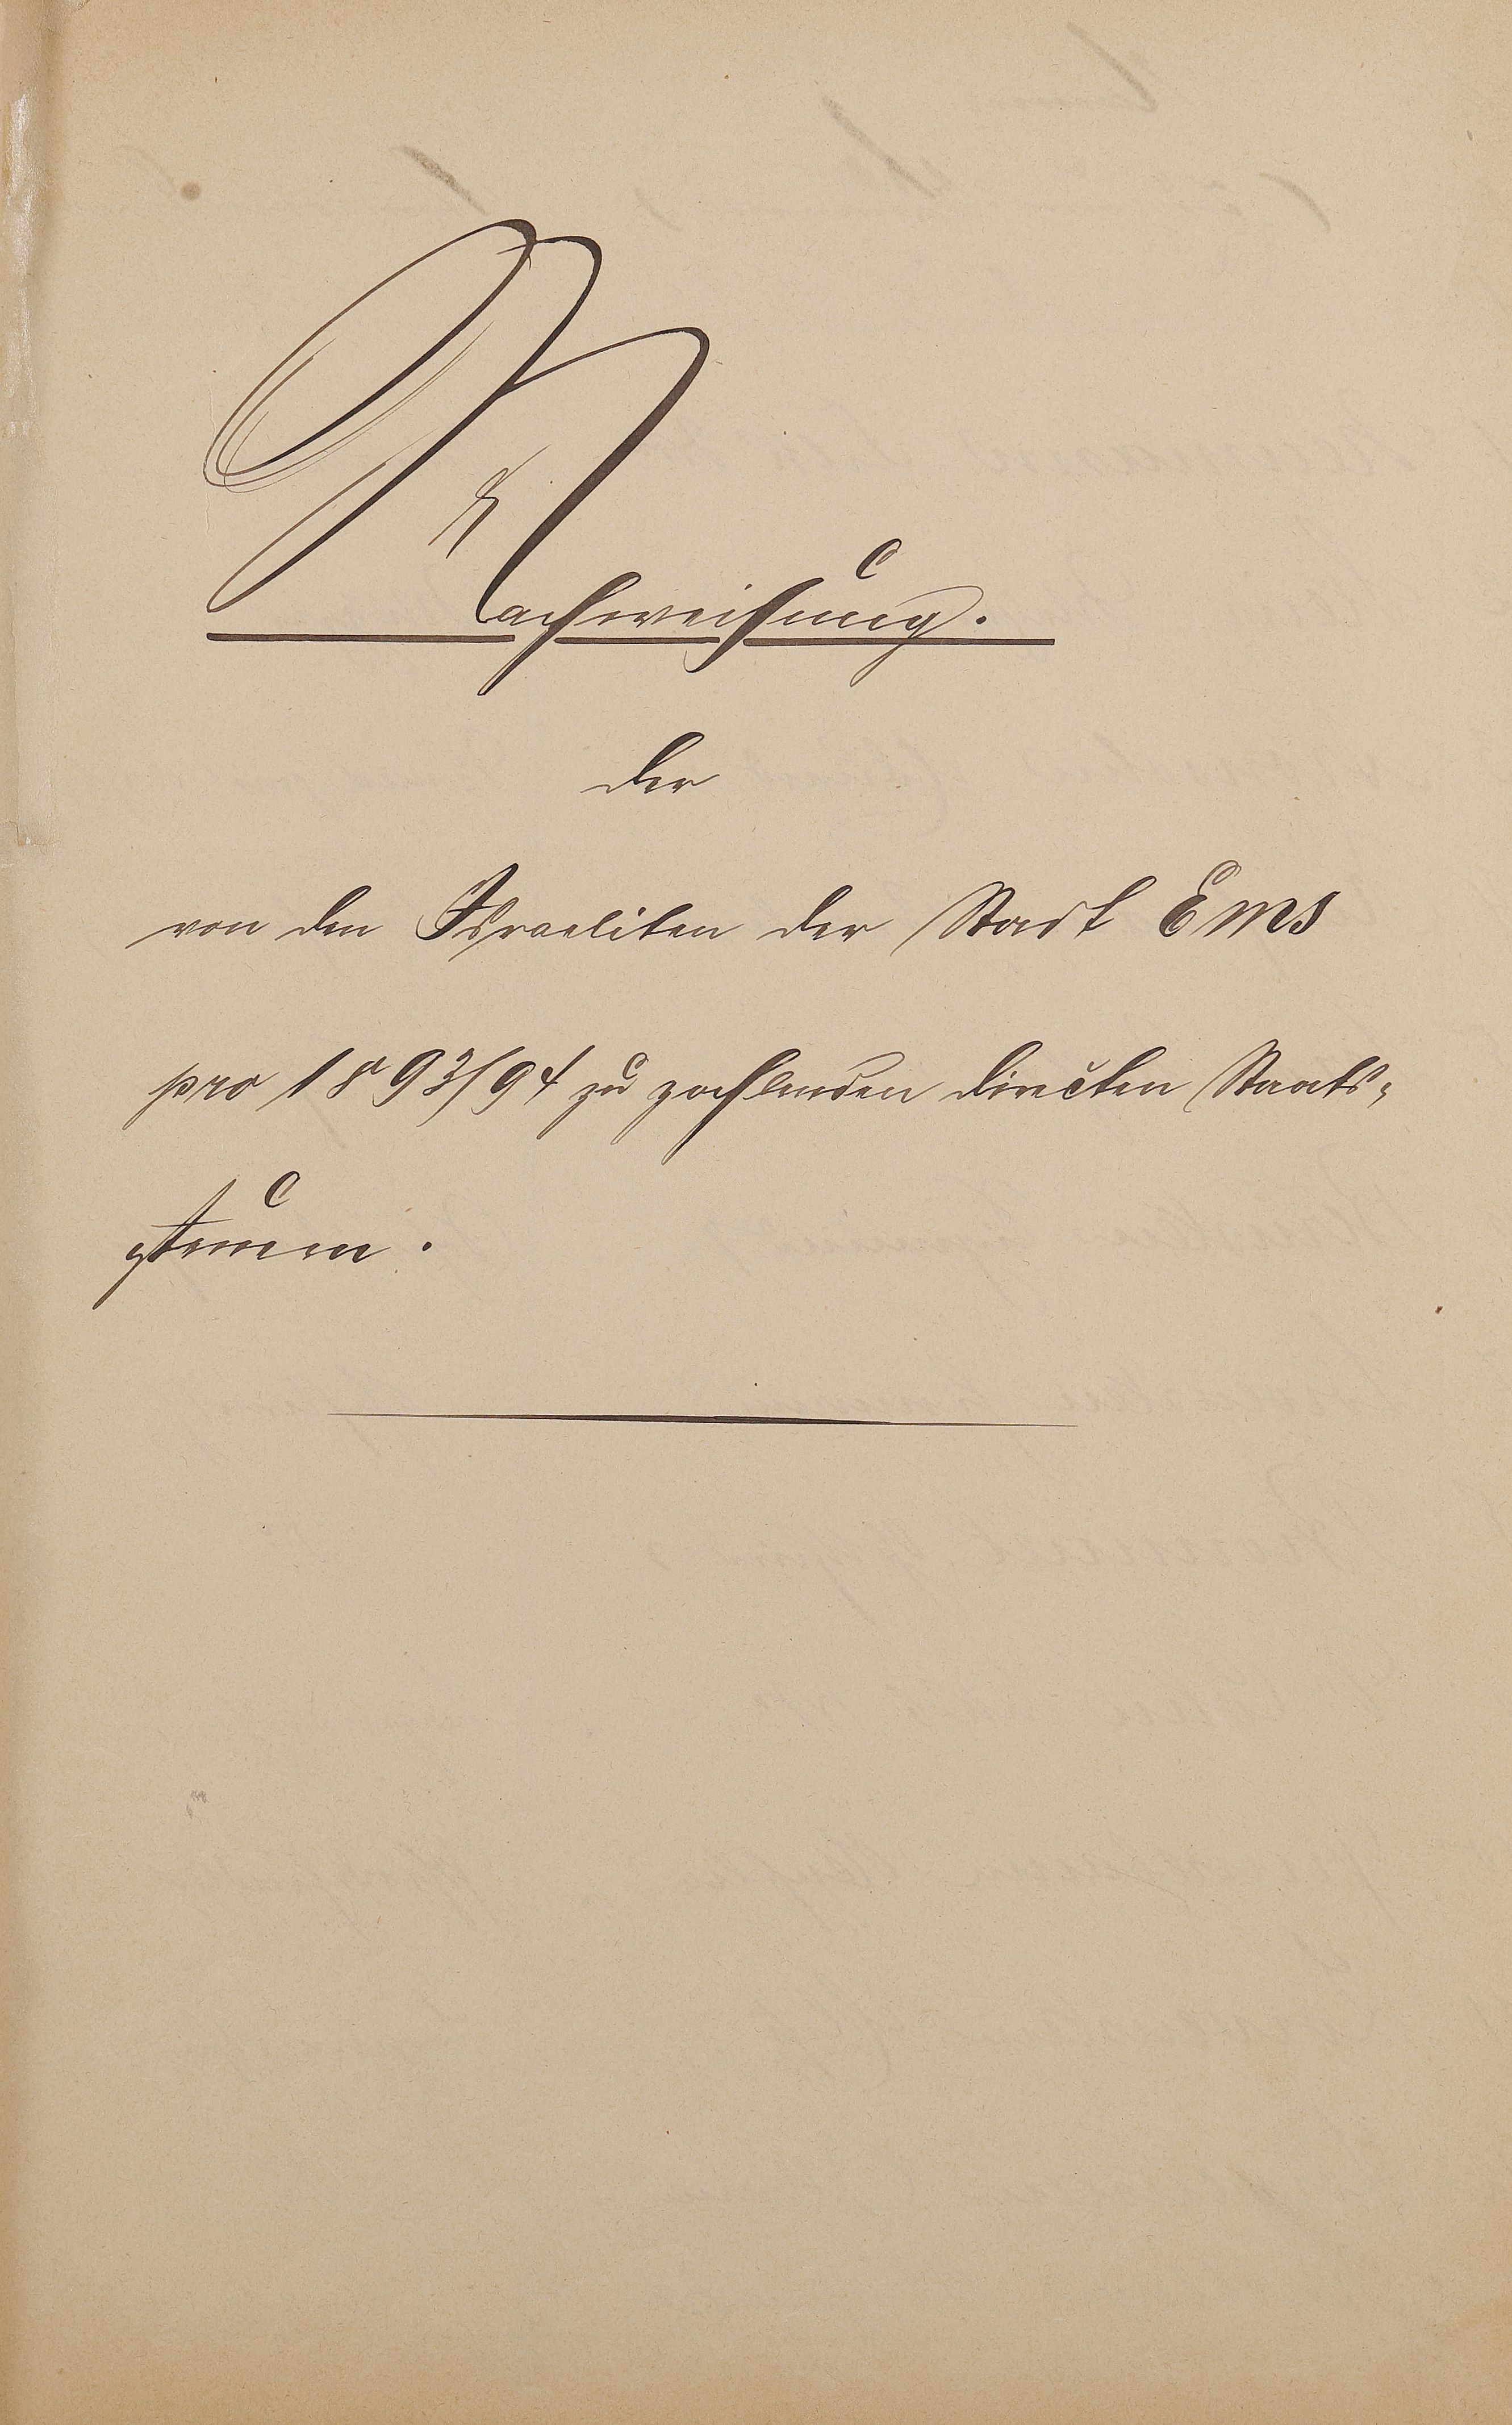 Nachweisung.
der
von den Israeliten der Stadt Ems
pro 1893/94 zu zahlenden directen Staats-
steuern.